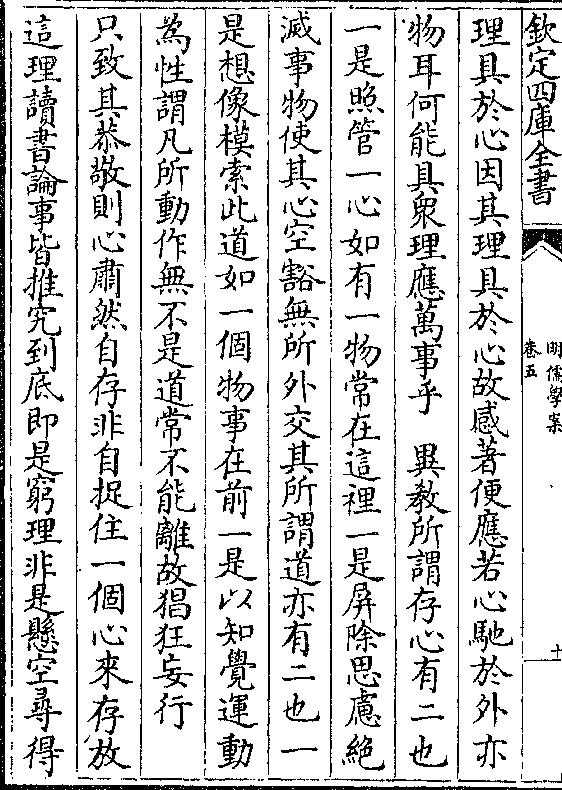 欽定四庫全書
明儒學案
卷五
十
理具於心因其理具於心故感著便應若心馳於外亦
物耳何能具衆理應萬事乎　異教所謂存心有二也
一是照管一心如有一物常在這裡一是屏除思慮絶
滅事物使其心空豁無所外交其所謂道亦有二也一
是想像模索此道如一個物事在前一是以知覺運動
為性謂凡所動作無不是道常不能離故猖狂妄行
只致其恭敬則心肅然自存非自捉住一個心來存放
這理讀書論事皆推究到底即是窮理非是懸空尋得